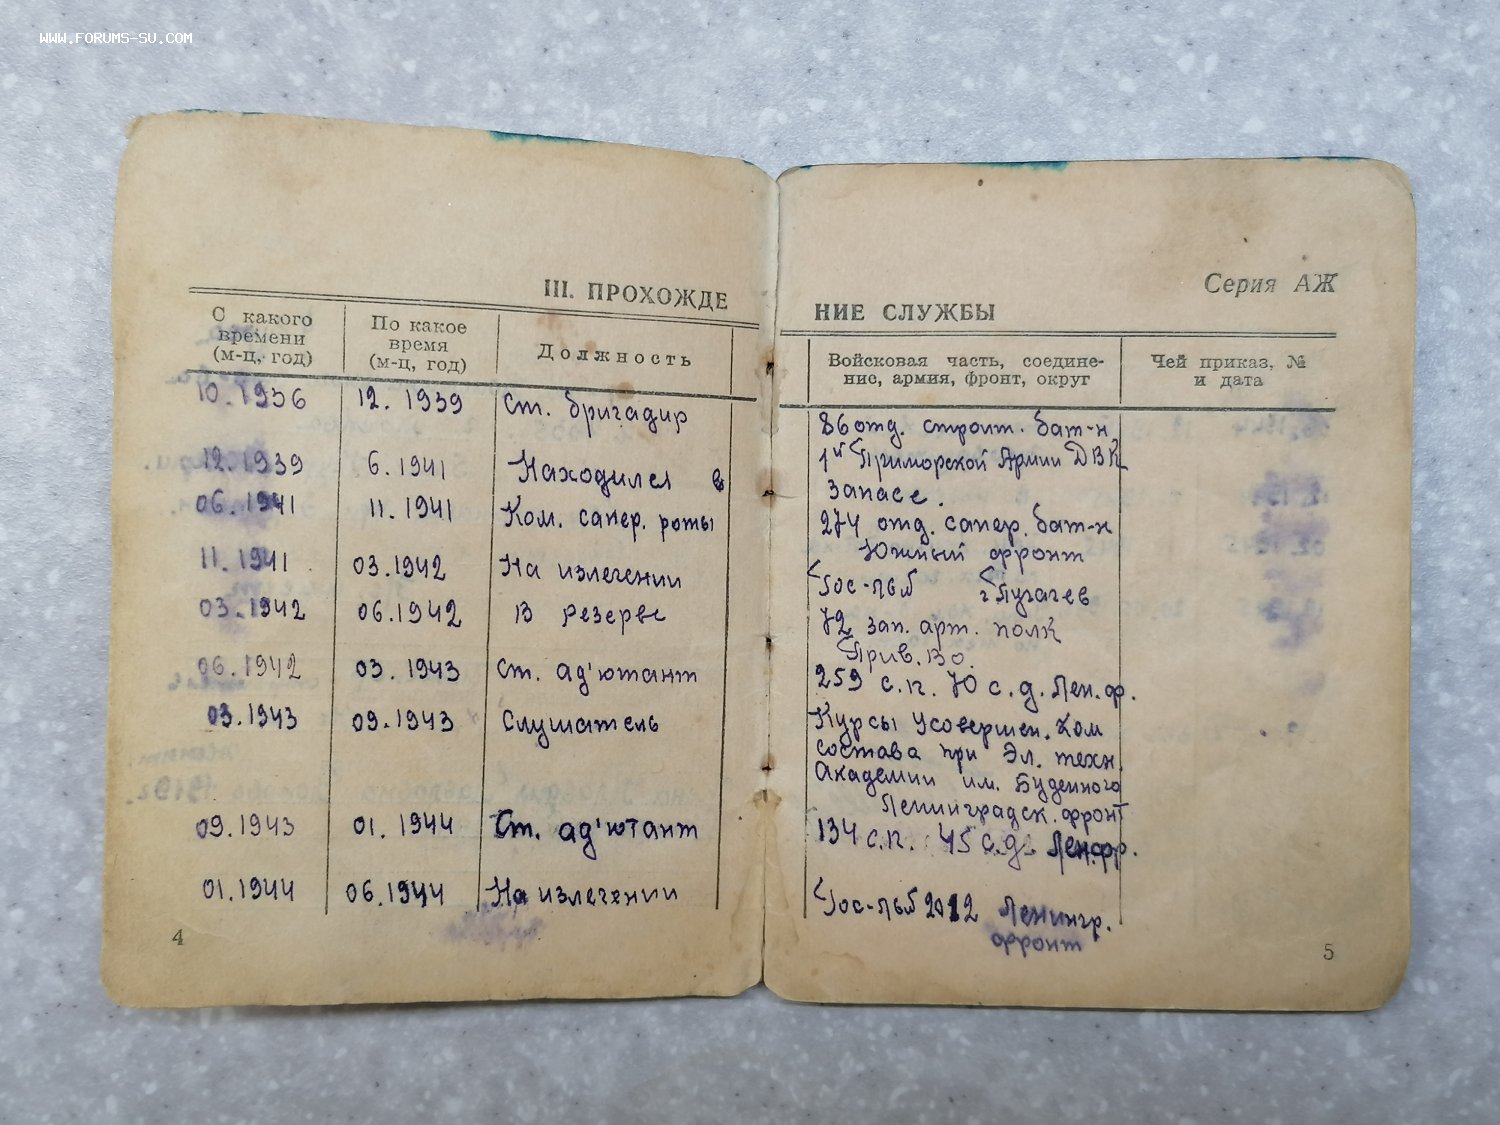 WWW.FORUMS-SU.COM
III. ПРОХОЖДЕ
С какого времени (м-ц, год)
По какое время (м-ц, год)
Должность
10.1936 12.1939 Ст. бригадир
12.1939 6.1941 Находился в
06.1941 11.1941 Ком. сапер. роты
11.1941 03.1942 На излечении
03.1942 06.1942 В резерве
06.1942 03.1943 Ст. ад'ютант
03.1943 09.1943 Слушатель
09.1943 01.1944 Ст. ад'ютант
01.1944 06.1944 На излечении
4
Серия АЖ
НИЕ СЛУЖБЫ
Войсковая часть, соедине-
ние, армия, фронт, округ
Чей приказ, №
и дата
86 отд. строит. бат-н
1й Приморской Армии ДВК
запасе.
274 отд. сапер. бат-н
Южный фронт
Гос-ль г Пугачев
72 зап. арт. полк
Прив. ВО.
259 с.п. 70 с.д. Лен. фр.
Курсы Усовершен. Ком
состава при Эл. техн.
Академии им. Буденного
Ленинградск. фронт
134 с.п. 45 с.д. Лен.фр.
Гос-ль 2012 Ленингр.
фронт
5